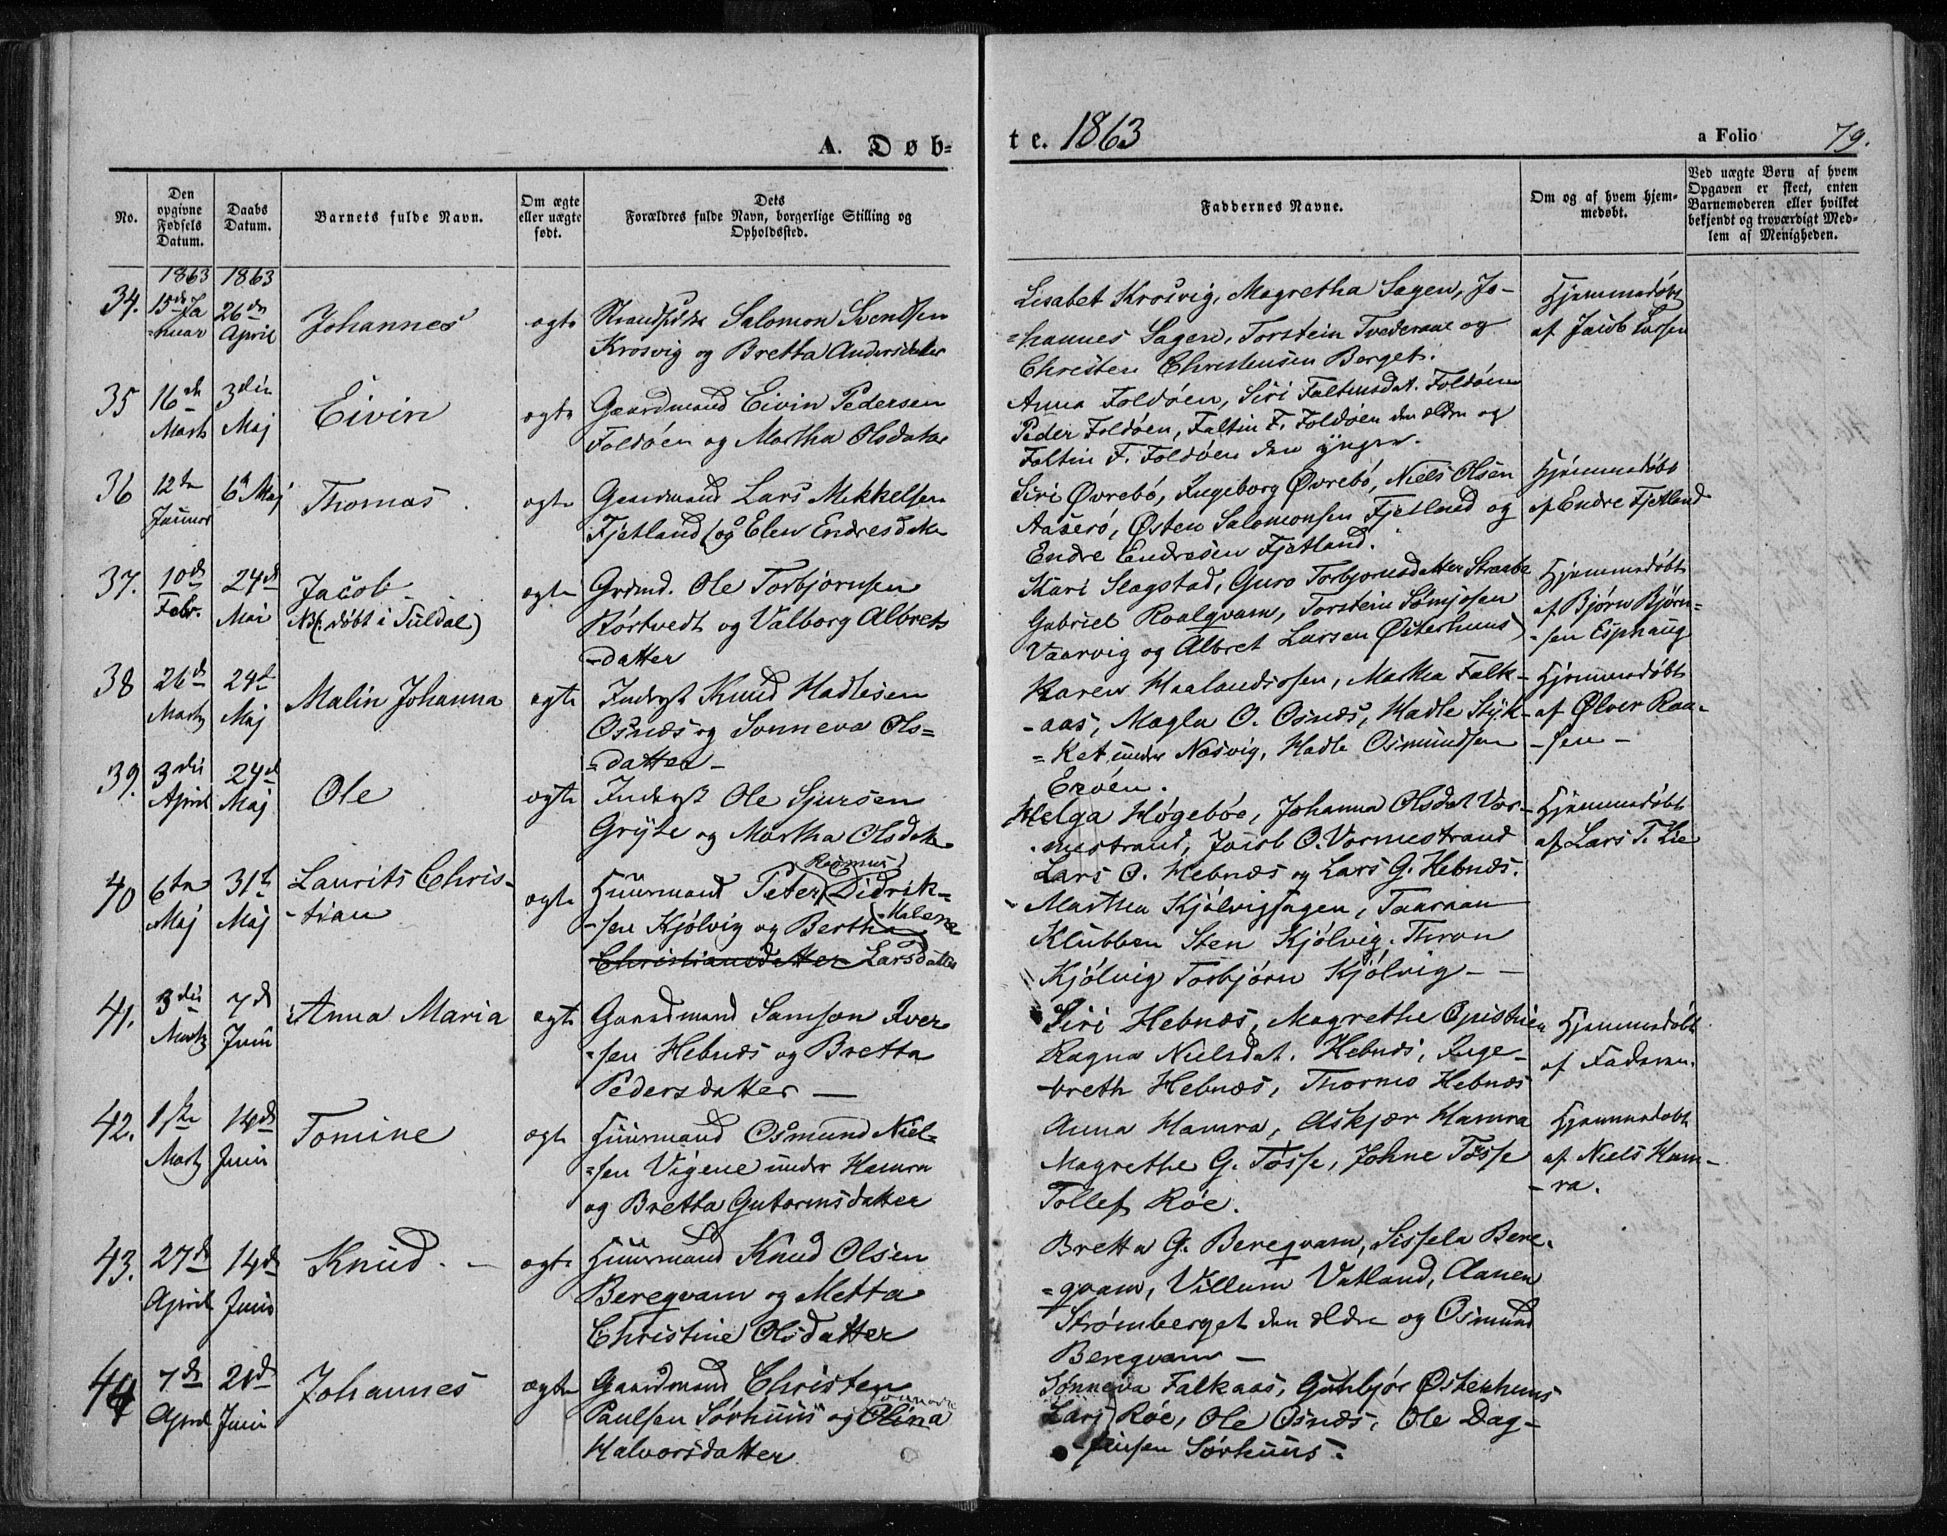 A. Døb-
te. 1863
a Folio 79.
No.
Den opgivne Fødsels Datum.
Daabs Datum.
Barnets fulde Navn.
Om ægte eller uægte født.
Dets Forældres fulde Navn, borgerlige Stilling og Opholdssted.
Faddernes Navne.
Om og af hvem hjemmedøbt.
Ved uægte Børn af hvem Opgaven er skeet, enten Barnemoderen eller hvilket bekjendt og troværdigt Medlem af Menigheden.
1863 1863
34. 15de Ja
=nuar
26de April
Johannes
ægte
Strandsidder Salomon Svendsen
Krosvig og Bretta Andersdatter
Lisabet Krosvig, Magretha Sagen, Jo-
=hannes Sagen, Torstein Tvederaae og
Christen Christensen Berget.
Hjemmedøbt
af Jacob Larsen
35 16de Marts
3die Maj
Eivin
ægte
Gaardmand Eivin Pedersen
Foldøen og Martha Olsdatter
Anna Foldøen, Siri Faltinsdat. Foldøen
Peder Foldøen, Faltin F. Foldøen den ældre og
Faltin F. Foldøen den yngre.
36 12te Januar
6te Maj
Thomas
ægte
Gaardmand Lars Mikkelsen
Fjetland og Elen Endresdatter
Siri Øvrebö, Ingeborg Øvrebö, Niels Olsen
Aaserö, Østen Salomonsen Fjetland og
Endre Endresen Fjetland.
Hjemmedøbt
af Endre Fjetland
37. 10de Febr.
24de Mai
Jacob
NB (døbt i Suldal)
ægte
Grdmd. Ole Torbjørnsen
Rørtvedt og Valborg Albrets
-datter
Kari Slagstad, Guro Torbjornsdatter Straabe
Gabriel Roalqvam, Torstein Sömjosen
Vaarvig og Albret Larsen Østerhuus
Hjemmedøbt
af Bjørn Björn-
-sen Esphaug
38 26de Marts
24de Maj
Malin Johanna
ægte
Inderst Knud Hadlesen
Osnæs og Sonneva Ols=
=datter -
Karen Haalandsosen, Martha Falk-
-aas, Magla O. Osnæs, Hadle Styk-
=ket under Næsvig, Hadle Osmundsen
Eröen.
Hjemmedøbt
af Ølver Raa-
-sen -
39. 3die April
24de Maj
Ole
ægte
Inderst Ole Sjursen
Gryte og Martha Olsdatter
Helga Høgebøe, Johanna Olsdat. Vor-
mestrand, Jacob O. Vormestrand
Lars O. Hebnæs og Lars G. Hebnæs.
Hjemmedøbt
af Lars T. Lie
40 6te Maj
31te Maj
Laurits Chris-
-tian
ægte
Huusmand Peter Rasmus Didrik-
-sen Kjölvig og Bertha Malene
Christiansdatter Larsdatter
Martha Kjölvigshagen, Taaraan
Klubben Sten Kjölvig, Thron
Kjölvig Torbjørn Kjölvig -
41. 3die Marts
7de Juni
Anna Maria
ægte
Gaardmand Samson Iver
=sen Hebnæs og Bretta
Pedersdatter -
Siri Hebnæs, Magrethe Opistuen
Ragna Nielsdat. Hebnæs, Inge-
-breth Hebnæs, Thormo Hebnæs
Hjemmedøbt
af Faderen.
42. 1ste Marts
14de Juni
Tomine
ægte
Huusmand Osmund Niel-
=sen Vigene under Hamra
og Bretta Gutormsdatter
Anna Hamra, Askjær Hamra
Magrethe G. Tösse, Johne Tösse
Tollef Røe.
Hjemmedøbt
af Niels Ham-
-ra.
43. 27de April
14de Juni
Knud. -
ægte
Huusmand Knud Olsen
Bereqvam og Metta
Christine Olsdatter
Bretta G. Bereqvam, Sissela Bere-
=qvam, Villum Vatland, Aanen
Strømberget den ældre og Osmund
Bereqvam -
44 7de April
21de Juni
Johannes
ægte
Gaardmand Christen
Paulsen Sørhuus og Olina
Halvorsdatter
Sønneva Falkaas, Gunbjör Østerhuus
Lars Røe, Ole Osnæs, Ole Dag-
-finsen Sörhuus.